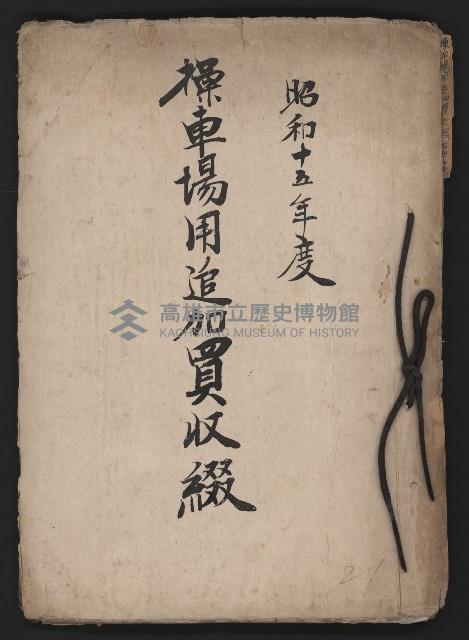 昭和十五年度
操車場用追加買収綴
高雄市立歷史博物館
KAOHSIUNG MUSEUM OF HISTORY
21